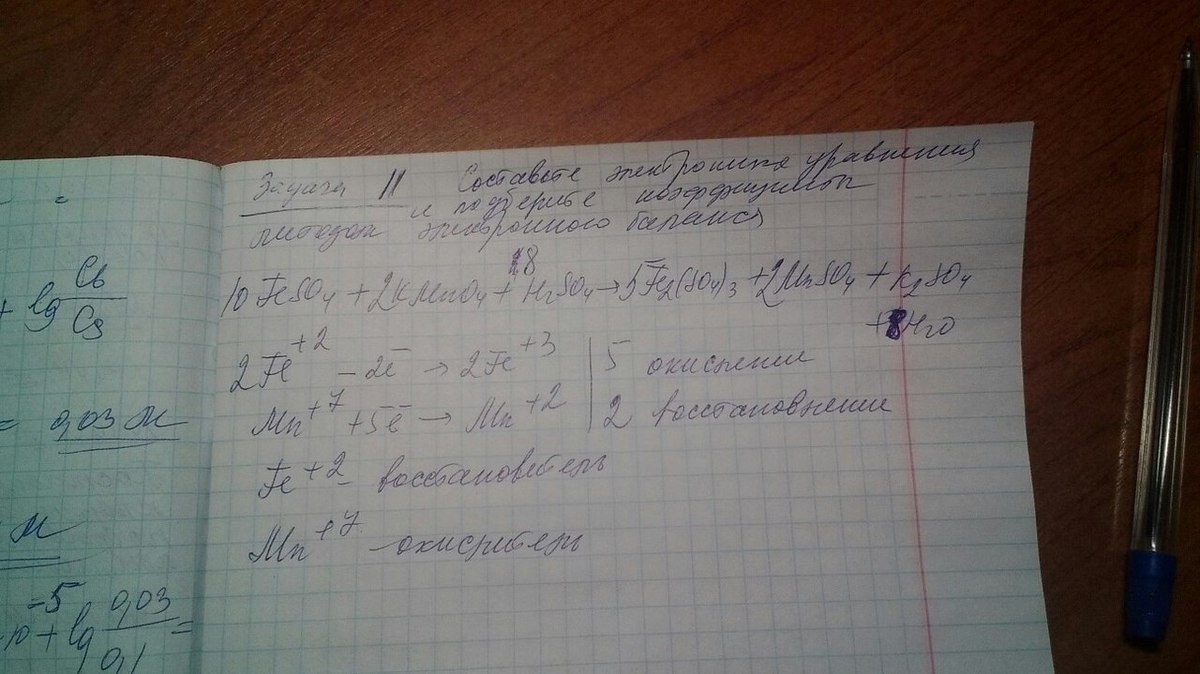 + lg Cb/Cg
= 0,03 M
M
-5
10 + lg 0,03/0,1 =
Задача 11 Составьте электронные уравнения
и подберите коэффициенты
методом электронного баланса
8
10 FeSO4 + 2KMnO4 + H2SO4 → 5Fe2(SO4)3 + 2MnSO4 + K2SO4
+ 8H2O
2Fe+2 - 2ē → 2Fe+3 | 5 окисление
Mn+7 + 5ē → Mn+2 | 2 восстановление
Fe+2 - восстановитель
Mn+7 - окислитель